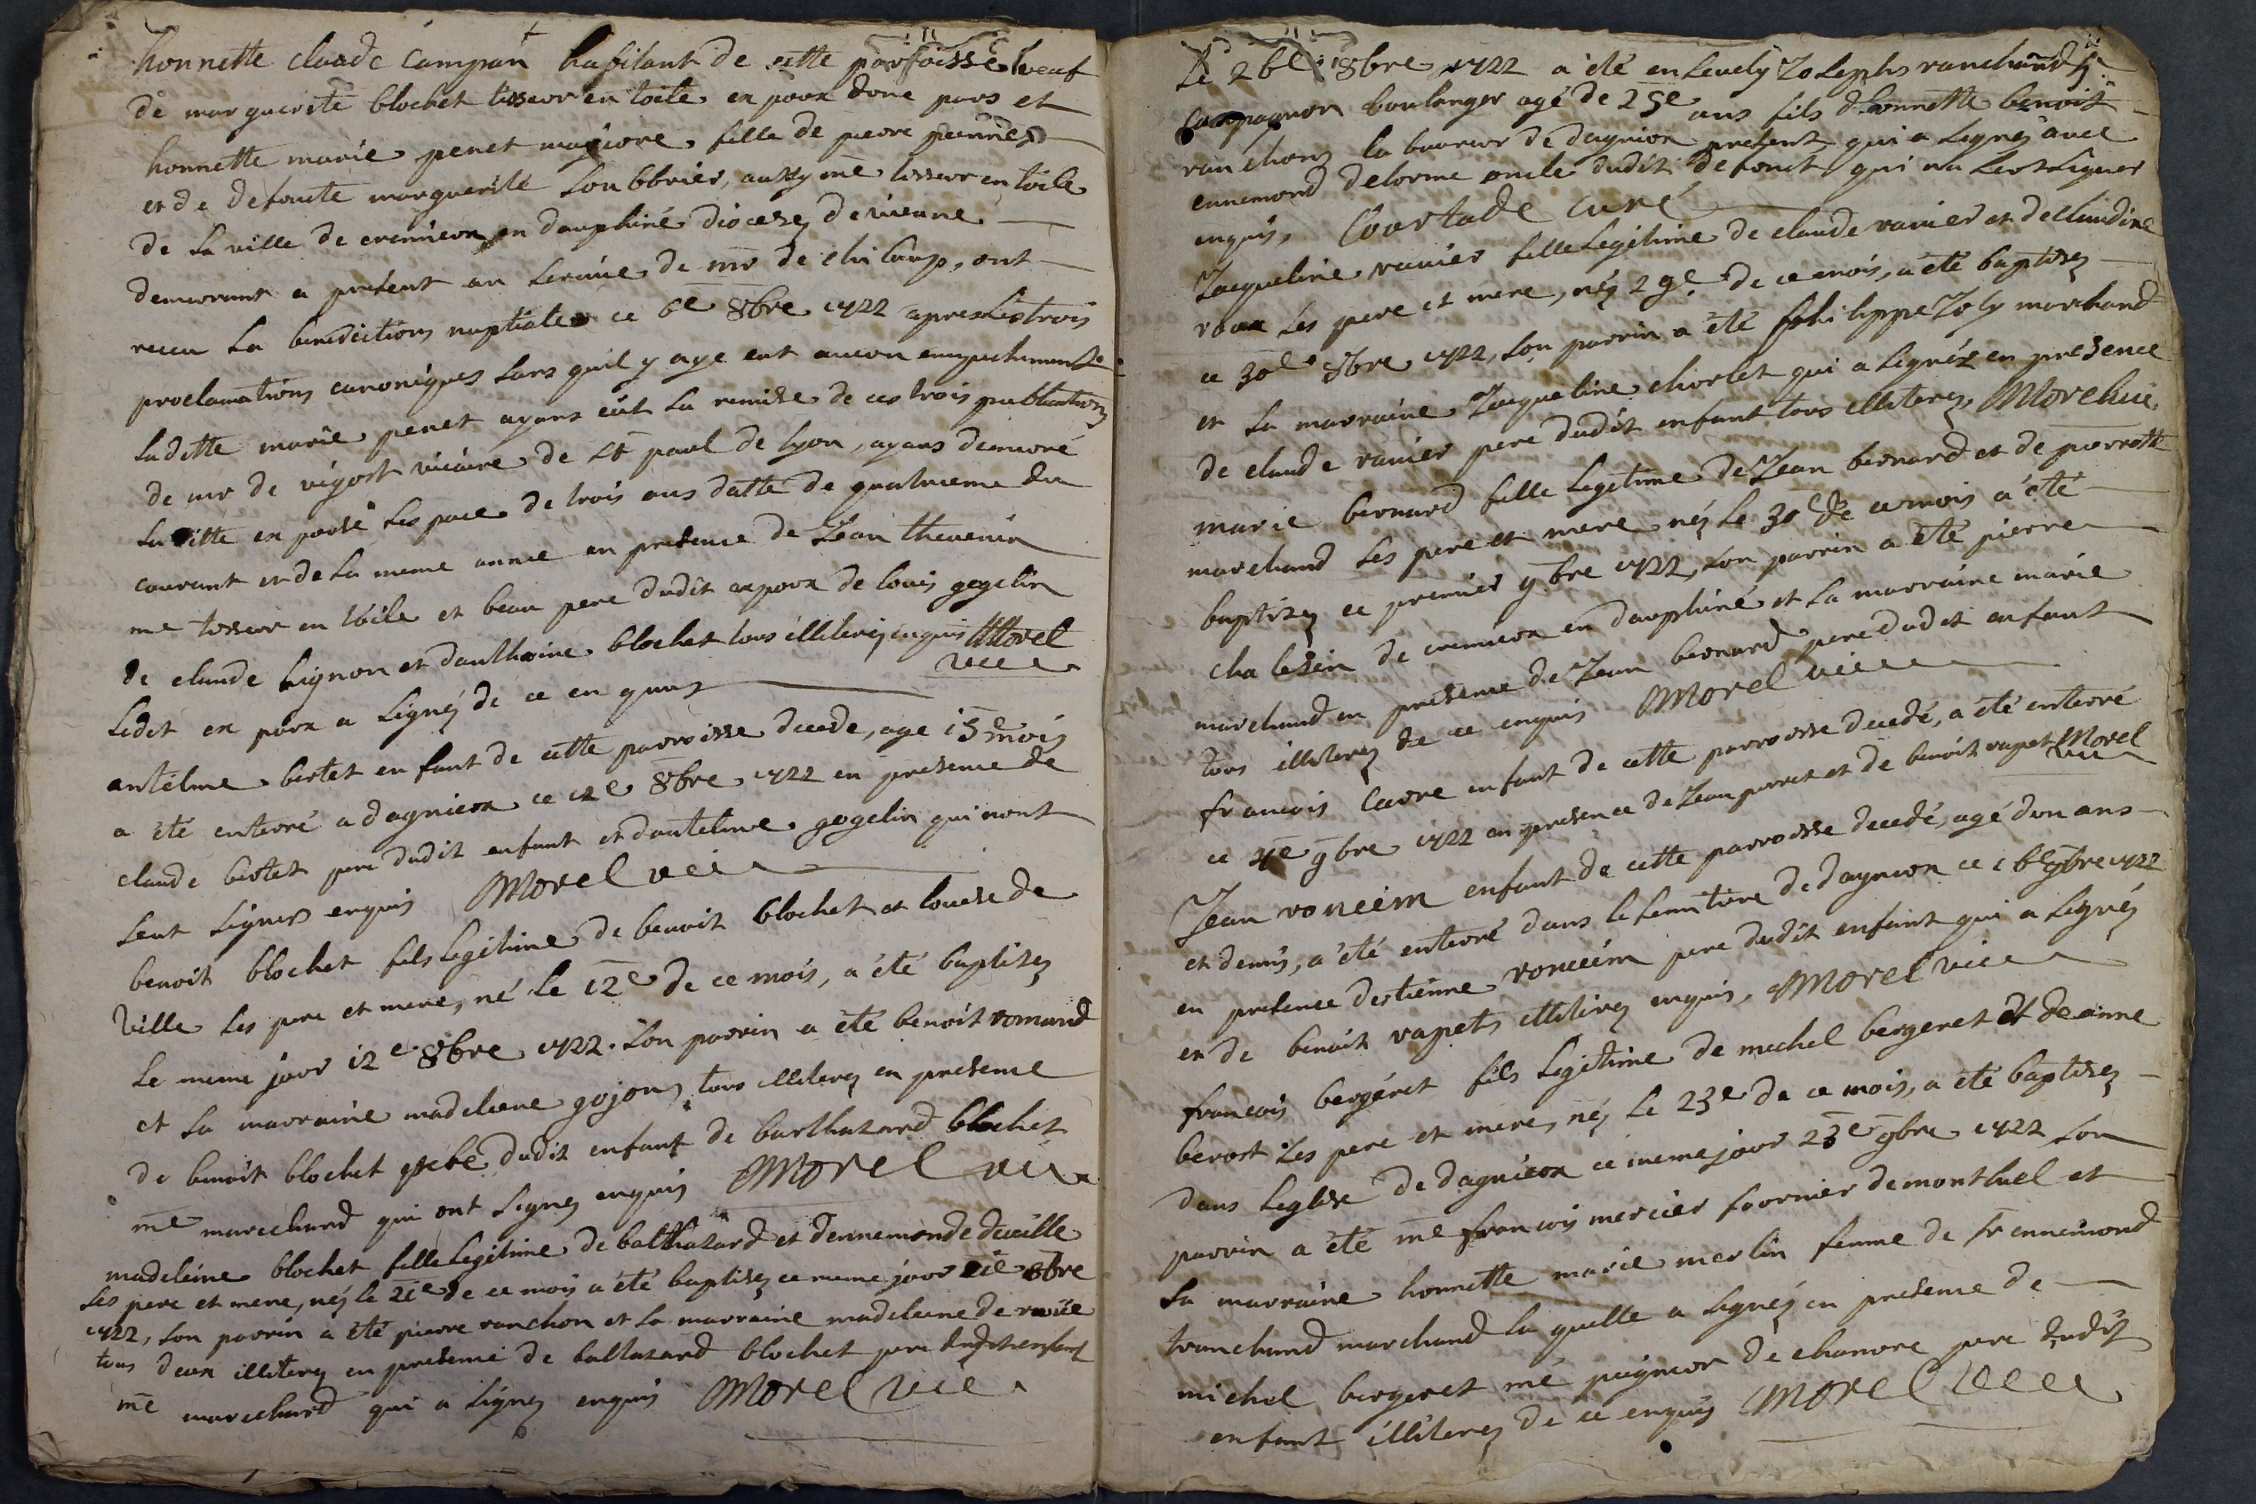 honnette claude Campan habitant de cette parroisse veuf
de marguerite blochet tisseur en toile epoux d'une pars et
honnette marie penet majeure fille de pierre
et de defuncte marguerite aussy me tisseur en toile
de la ville de cremieux en dauphiné diocesez de vienne
demeurant a present au service de mr de chi loup, ont
receu la benediction nuptiale ce 6e 8bre 1722 apres les trois
proclamations canoniques sans quil y aye eut aucun empechement
ladette marie penet ayans eut la remise de ces trois publications
de mr de vigost vicaire de st paul de lyon, ayans demeuré
la ditte ex poose les pace de trois ans datte de quatrieme du
courant et de la meme annee en presence de Jean thevenin
me tisseur en toile et beau pere dudit expoux de louis gogelin
de claude lignon et danthoine blochet tous illiterez enquis Morel
ledit ex poux a signéz de ce en quis vic
antelme bertet enfant de cette parroisse decede, age 15 mois
a été enterré a dagnieux ce 12e 8bre 1722 en presence de
claude bertet pere dudit enfant et dantelme gogelin qui nont
seut signer enquis Morel vic
benoit blochet fils legitime de benoit blochet et louise de
ville ses pere et mere, né le 12e de ce mois, a été baptisez
le meme jour 12e 8bre 1722. son parrin a été benoit romand
et la marraine madeleine gojon, tous illiterez en presence
de benoit blochet pere dudit enfant de barthazard blochet
me marechand qui ont signez enquis Morel vic
madeleine blochet fille legitime de balthazard et dennemonde deville
ses pere et mere, néz le 21e de ce mois a été baptisez ce meme jour 21e 8bre
1722, son parrin a été pierre ranchon et la marraine madeleine de
tous deux illiterez en presence de baltazard blochet pere dudit enfant
me marechand qui a signez enquis Morel vic
Le 26e 8bre 1722 a été enseuely Joseph ranchon
Compagnon boulanger agé de 25e ans fils dhonnette benoit
ranchon laboureur de dagnieux present qui a signéz avec
ennemond delorme oncle dudit defonct qui na seu signer
enquis, Courtade curé
Jacqueline ranier fille legitime de claude ranier et de claudine
roux ses pere et mere, néz 29e de ce mois, a été baptisez
ce 30e 8bre 1722, son parrin a été philippe Joly marchand
et la marraine Jacqueline chiorlet qui a signéz en presence
de claude ranier pere dudit enfant tous illiterez, Morel vic
marie bernard fille legitime de Jean bernard et de pierrette
marchand ses pere et mere néz le 30e de ce mois a été
baptisez ce premier 9bre 1722, son parrin a été pierre
cha lessin de cremieux en dauphiné et la marraine marie
marchand en presence de Jean bernard pere dudit enfant
tous illiterez de ce enquis Morel vic
francois Cavre enfant de cette parroisse decedé, a été enterré
ce 4e 9bre 1722 en presence de Jean perret et de benoit rapet Morel vic
Jean roncein enfant de cette parroisse decedé, agé dun ans
et demis, a été enterré dans le semitiere de dagnieux ce 16e 9bre 1722
en presence destienne roncein pere dudit enfant qui a signéz
et de benoit rapet illiterez enquis, Morel vic
francois bergeret fils legitime de michel bergeret et deanne
berost ses pere et mere, néz le 23e de ce mois, a été baptisez
dans leglise de dagnieux ce meme jour 23e 9bre 1722 son
parrin a été me francois mercier fournier de montluel et
la marraine honnette marie merlin femme de sr ennemond
tranchand marchand la quelle a signéz en presence de
michel bergeret me peigneur de chanvre pere dudit
enfant illiterez de ce enquis Morel vic